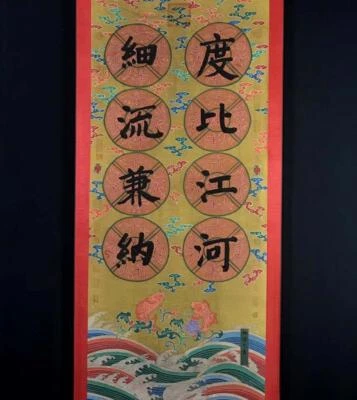 度比江河
細流兼納